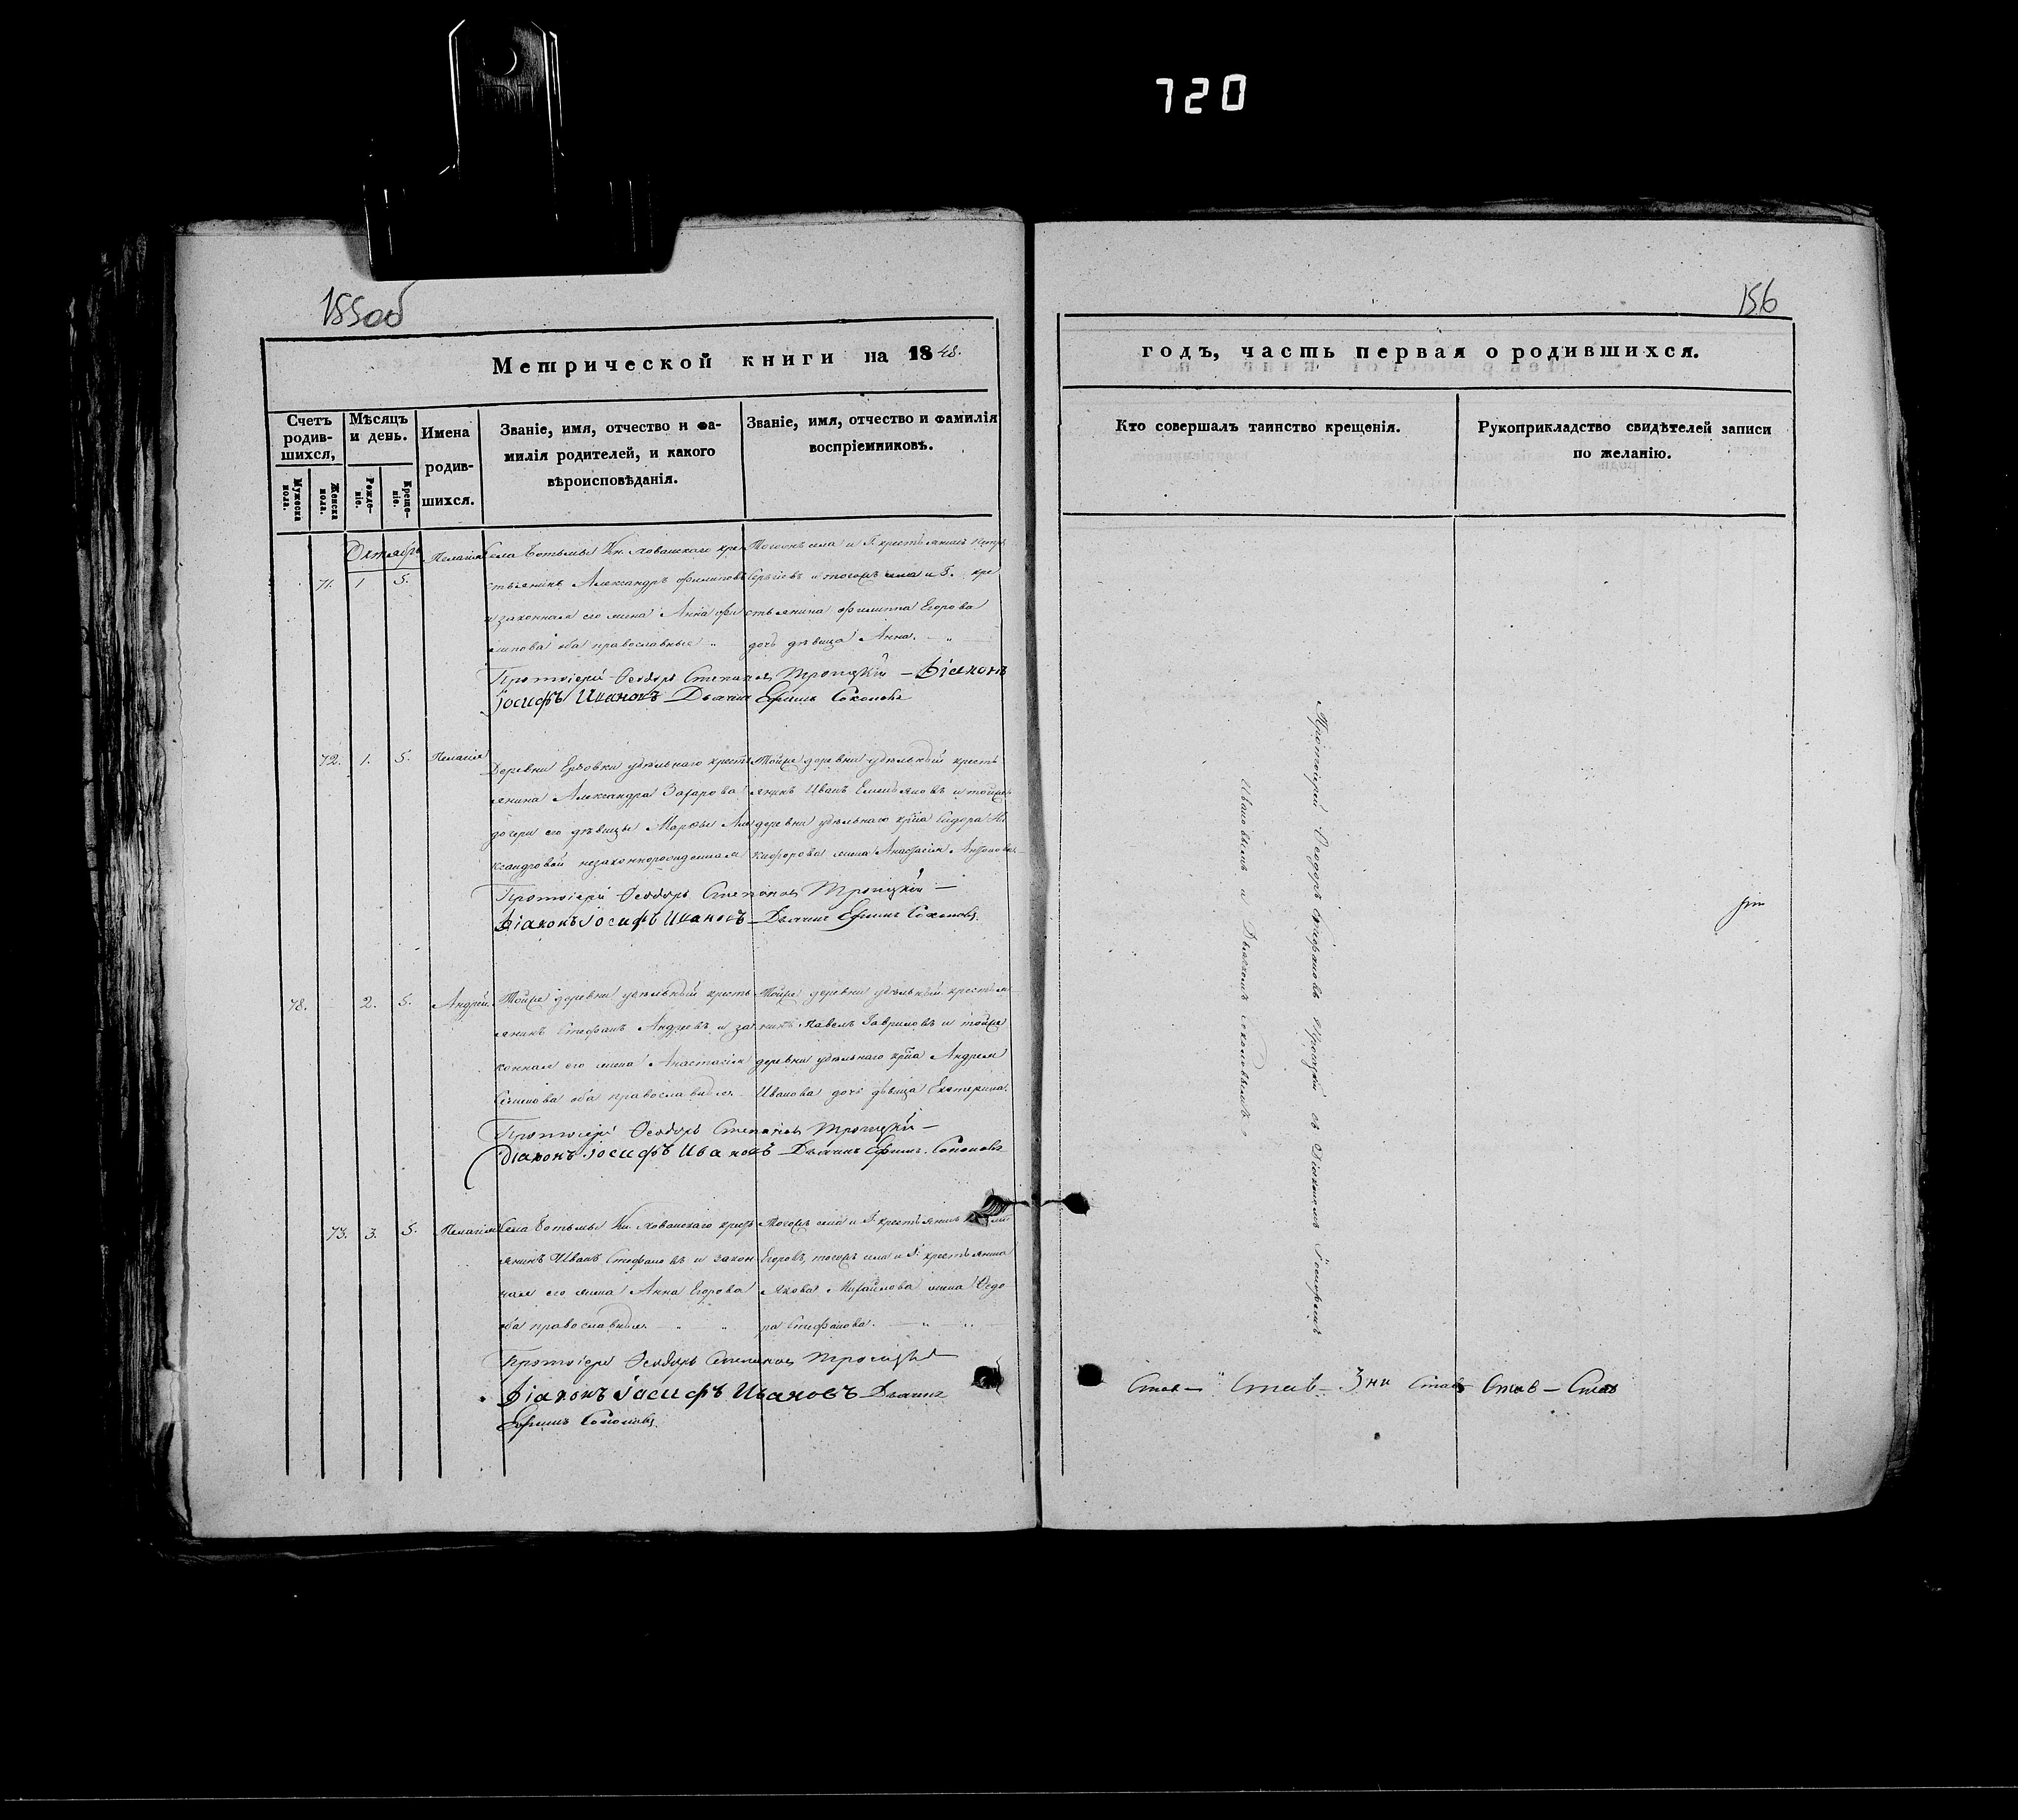 720
155об
156
Метрической книги на 1848.
годъ, часть первая о родившихся.
Счетъ родив-шихся,
Мужеска пола.
Женска пола.
Мѣсяцъ и день.
Рожде-ніе.
Креще-ніе.
Имена
родив-
шихся.
Званіе, имя, отчество и фа-
милія родителей, и какого
вѣроисповѣданія.
Званіе, имя, отчество и фамилія
воспріемниковъ.
Кто совершалъ таинство крещенія.
Рукоприкладство свидѣтелей записи
по желанію.
Октябрь
71. 1 5. Пелагія
Села Ботьмы Кн. Хованскаго кре
стьянинъ Александръ Филиповъ
и законная его жена Анна Фи
липова оба православные "
Тогожъ села и Г. крестьянинъ Петръ
Сергіевъ и тогожъ села и Г. кре
стьянина Филиппа Егорова
дочь дѣвица Анна. "
Протоіерей Ѳеодоръ Степановъ Троицкій — Діаконъ
Іосифъ Ивановъ Дьячекъ Ефимъ Соколовъ
72. 1. 5. Пелагія
Деревни Ерзовки удѣльнаго кресть
янина Александра Захарова
дочери его дѣвицы Марѳы Але
ксандровой незаконнорожденная
Тойже деревни удѣльный кресть
янинъ Иванъ Емельяновъ и тойже
деревни удѣльнаго кр-на Сидора Ни
кифорова жена Анастасія Антонова
Протоіерей Ѳеодоръ Степановъ Троицкій —
Діаконъ Іосифъ Ивановъ Дьячекъ Ефимъ Соколовъ
78. 2. 5. Андрей.
Тойже деревни удѣльный кресть
янинъ Стефанъ Андреевъ и за
конная его жена Анастасія
Семенова оба православные.
Тойже деревни удѣльный крестья
нинъ Павелъ Гавриловъ и тойже
деревни удѣльнаго кр-на Андрея
Иванова дочь дѣвица Екатерина.
Протоіерей Ѳеодоръ Степановъ Троицкій —
Діаконъ Іосифъ Ивановъ Дьячекъ Ефимъ Соколовъ
73. 3. 5. Пелагія
Села Ботьмы Кн. Хованскаго кресть
янинъ Иванъ Стефановъ и закон
ная его жена Анна Егорова
оба православные "
Тогожъ села и Г. крестьянинъ
Егоровъ, тогожъ села и Г. крестьянина
Якова Михайлова жена Ѳедо
ра Стефанова. "
Протоіерей Ѳеодоръ Степановъ Троицкій
Діаконъ Іосифъ Ивановъ Дьячекъ
Ефимъ Соколовъ.
Протоіерей Ѳеодоръ Стефановъ Троицкій съ Діакономъ Іосифомъ
Ивановымъ и Дьячкомъ Соколовымъ.